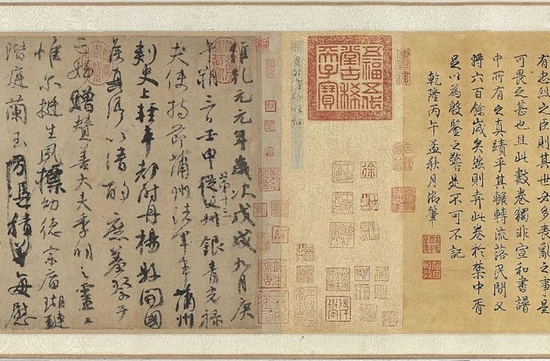 有忠烈之臣則其世必多喪亂之事是
可畏之甚也且此數卷獨非宣和書譜
中所有之真蹟乎其輾轉流落民間又
將六百餘歲矣然則弆此卷於中胥
足以為殷鑒之警是不可不記
乾隆丙午孟秋月御筆
五福五代堂古稀天子寶
維乾元元年歲次戊戌九月庚
午朔三日壬申從父銀青光祿
夫使持節蒲州諸軍事蒲州
刺史上輕車都尉丹楊縣開國
侯真卿以清酌庶羞祭于
亡姪贈贊善大夫季明之靈曰
惟爾挺生夙標幼德宗廟瑚璉
階庭蘭玉方憑積善每慰